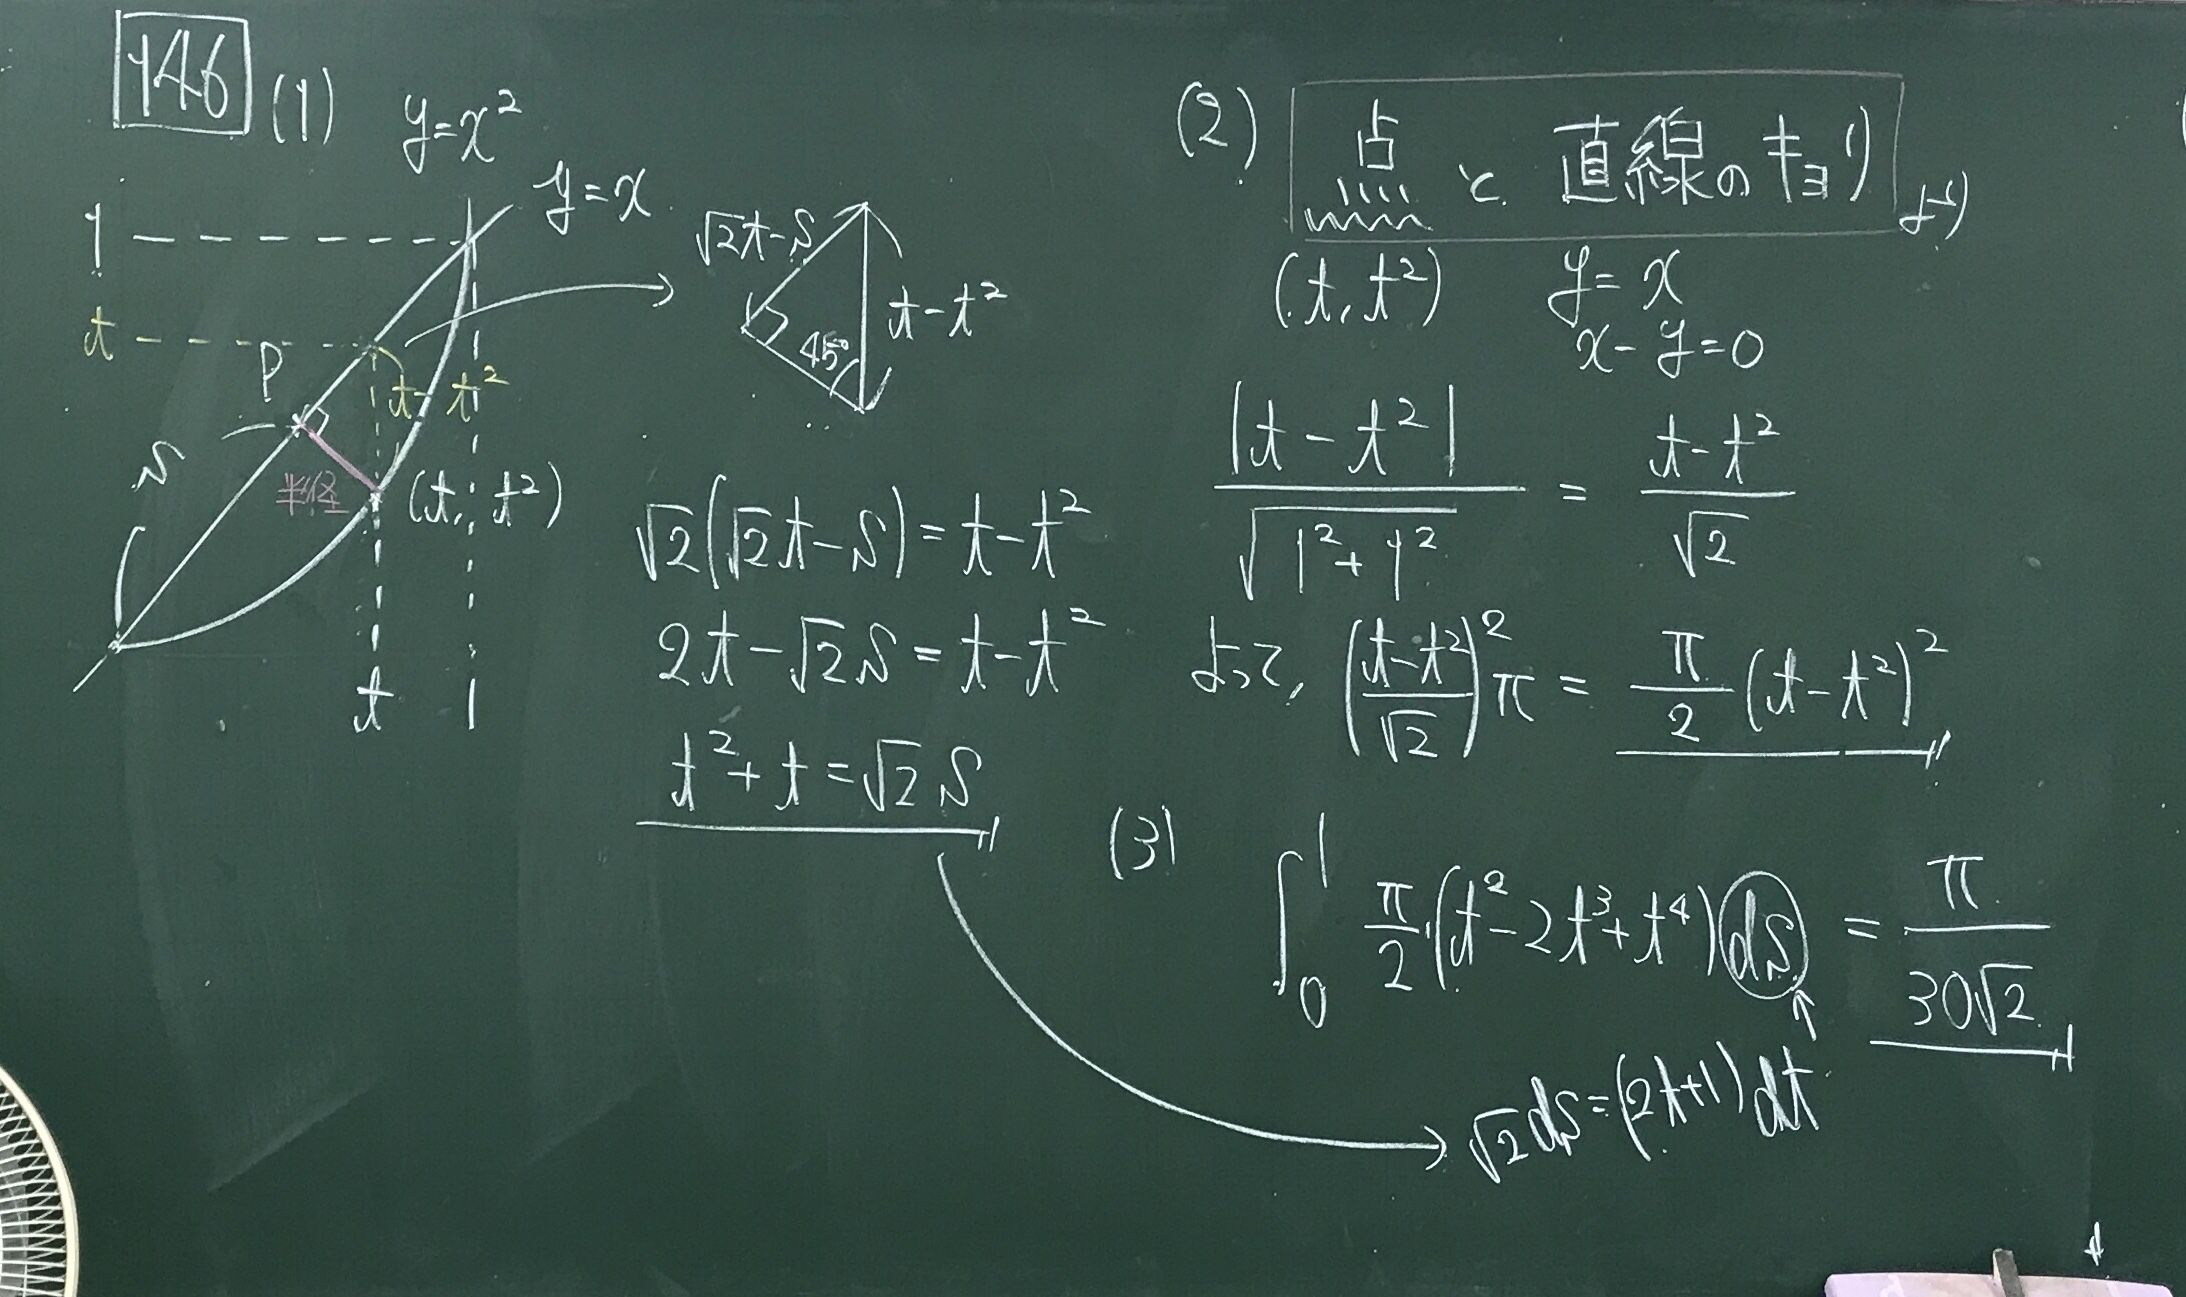 146 (1) y=x²
y=x
1
t
P
t-t²
s
半径
(t, t²)
t 1
√2t-s
t-t²
45°
√2(√2t-s)=t-t²
2t-√2s=t-t²
t²+t=√2s
(2) 点と直線のキョリより
(t, t²) y=x
x-y=0
|t-t²|/√(1²+1²) = (t-t²)/√2
よって, ((t-t²)/√2)²π = π/2 (t-t²)²
(3) ∫₀¹ π/2·(t²-2t³+t⁴)ds = π/(30√2)
√2ds=(2t+1)dt